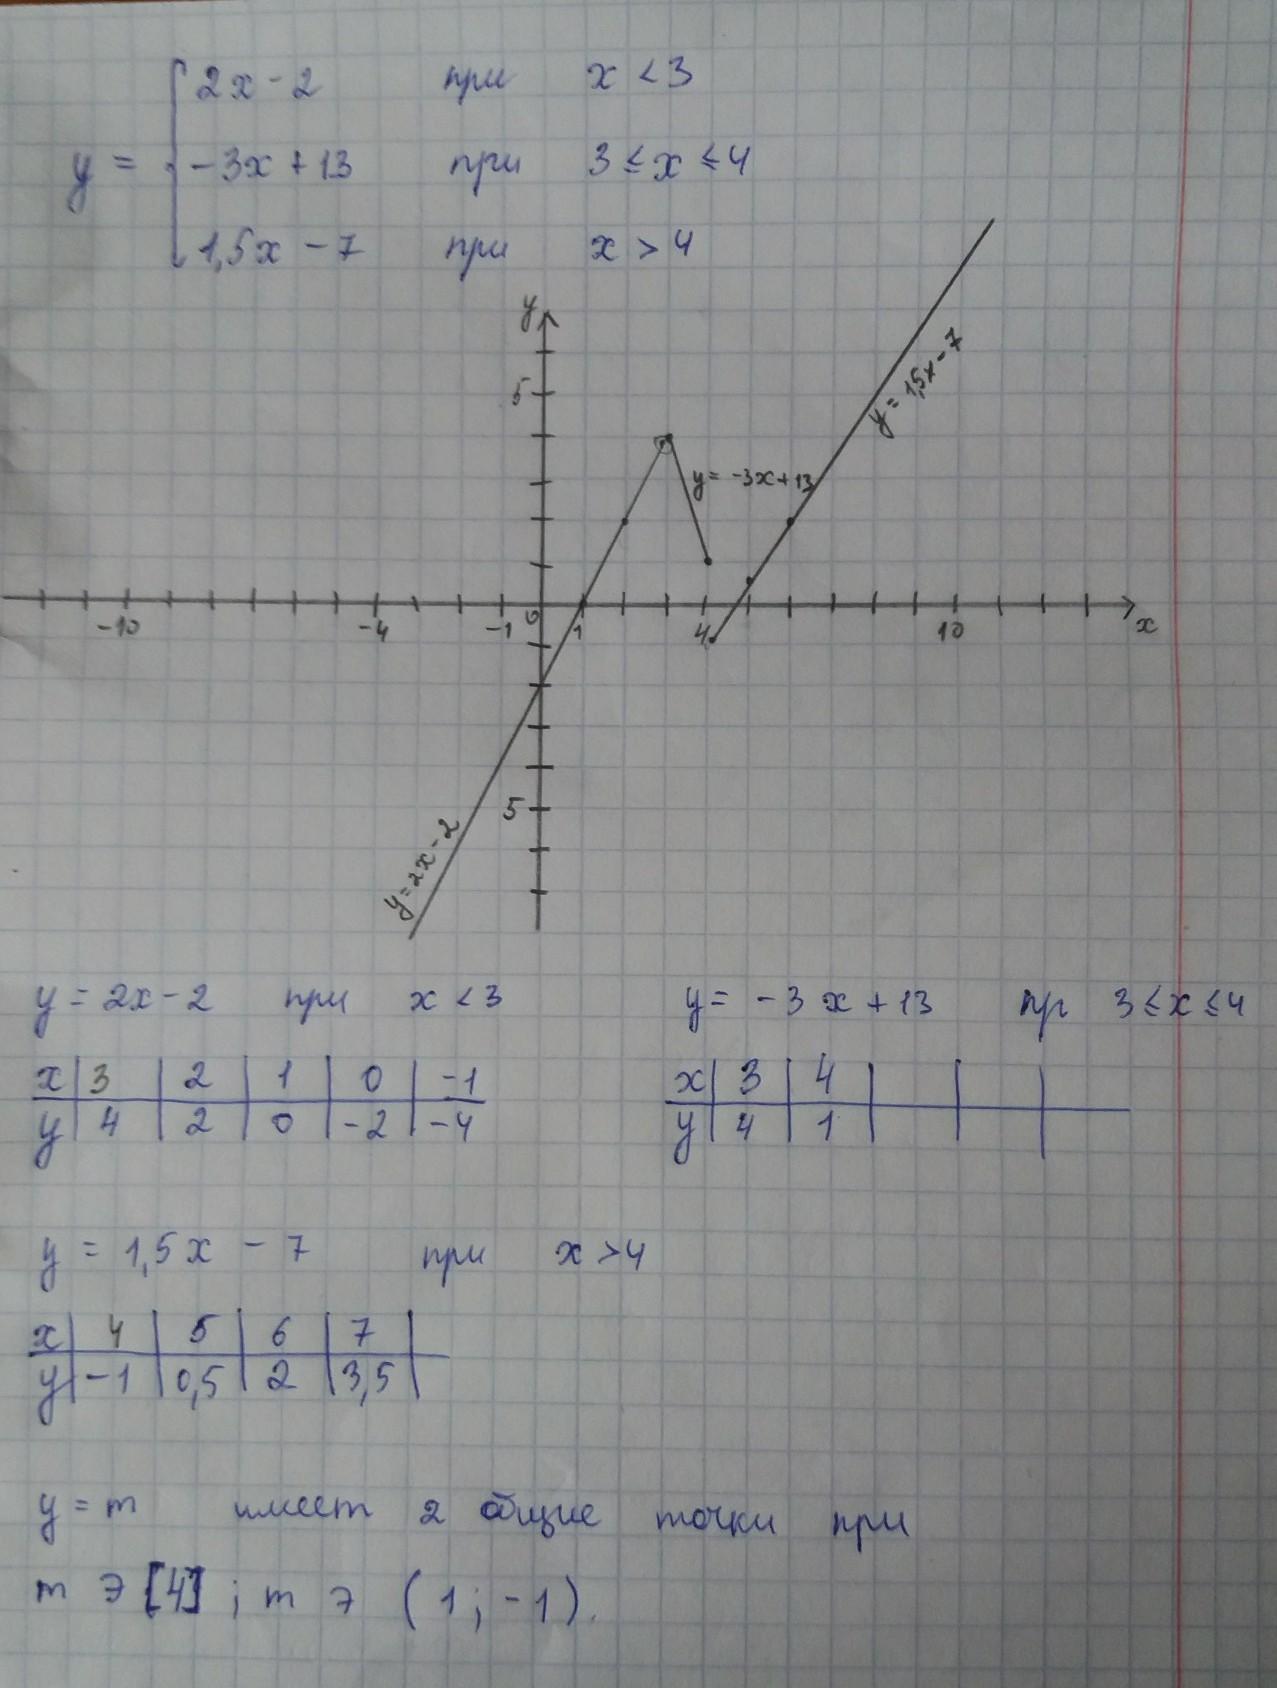 y = { 2x - 2 при x < 3
-3x + 13 при 3 ≤ x ≤ 4
1,5x - 7 при x > 4
y
5
y = 1,5x - 7
y = -3x + 13
-10 -4 -1 0 1 4 10 x
5
y = 2x - 2
y = 2x - 2 при x < 3
x | 3 | 2 | 1 | 0 | -1
y | 4 | 2 | 0 | -2 | -4
y = -3x + 13 пр 3 ≤ x ≤ 4
x | 3 | 4 | | |
y | 4 | 1 | | |
y = 1,5x - 7 при x > 4
x | 4 | 5 | 6 | 7 |
y | -1 | 0,5 | 2 | 3,5 |
y = m имеет 2 общие точки при
m Э [4] ; m Э (1; -1).